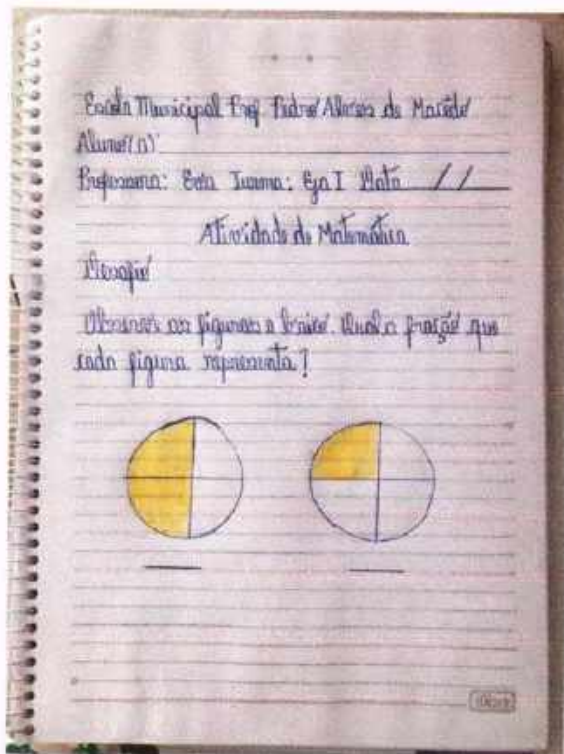 Escola Municipal Prof. Pedro Alvares de Macêdo
Aluno(a)
Professora: Eva Turma: Eja I Data / /
Atividade de Matemática
Desafio
Observe as figuras a baixo. Qual a fração que
cada figura representa?